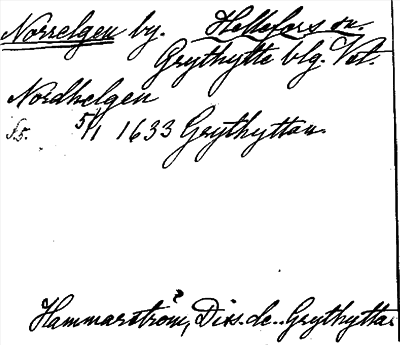 Norrelgen by. Hellefors sn.
Grythytte blg. Vstm.
Nordhelgen
5/1 1633 Grythyttan
Hammarström, Diss. de.. Grythytta